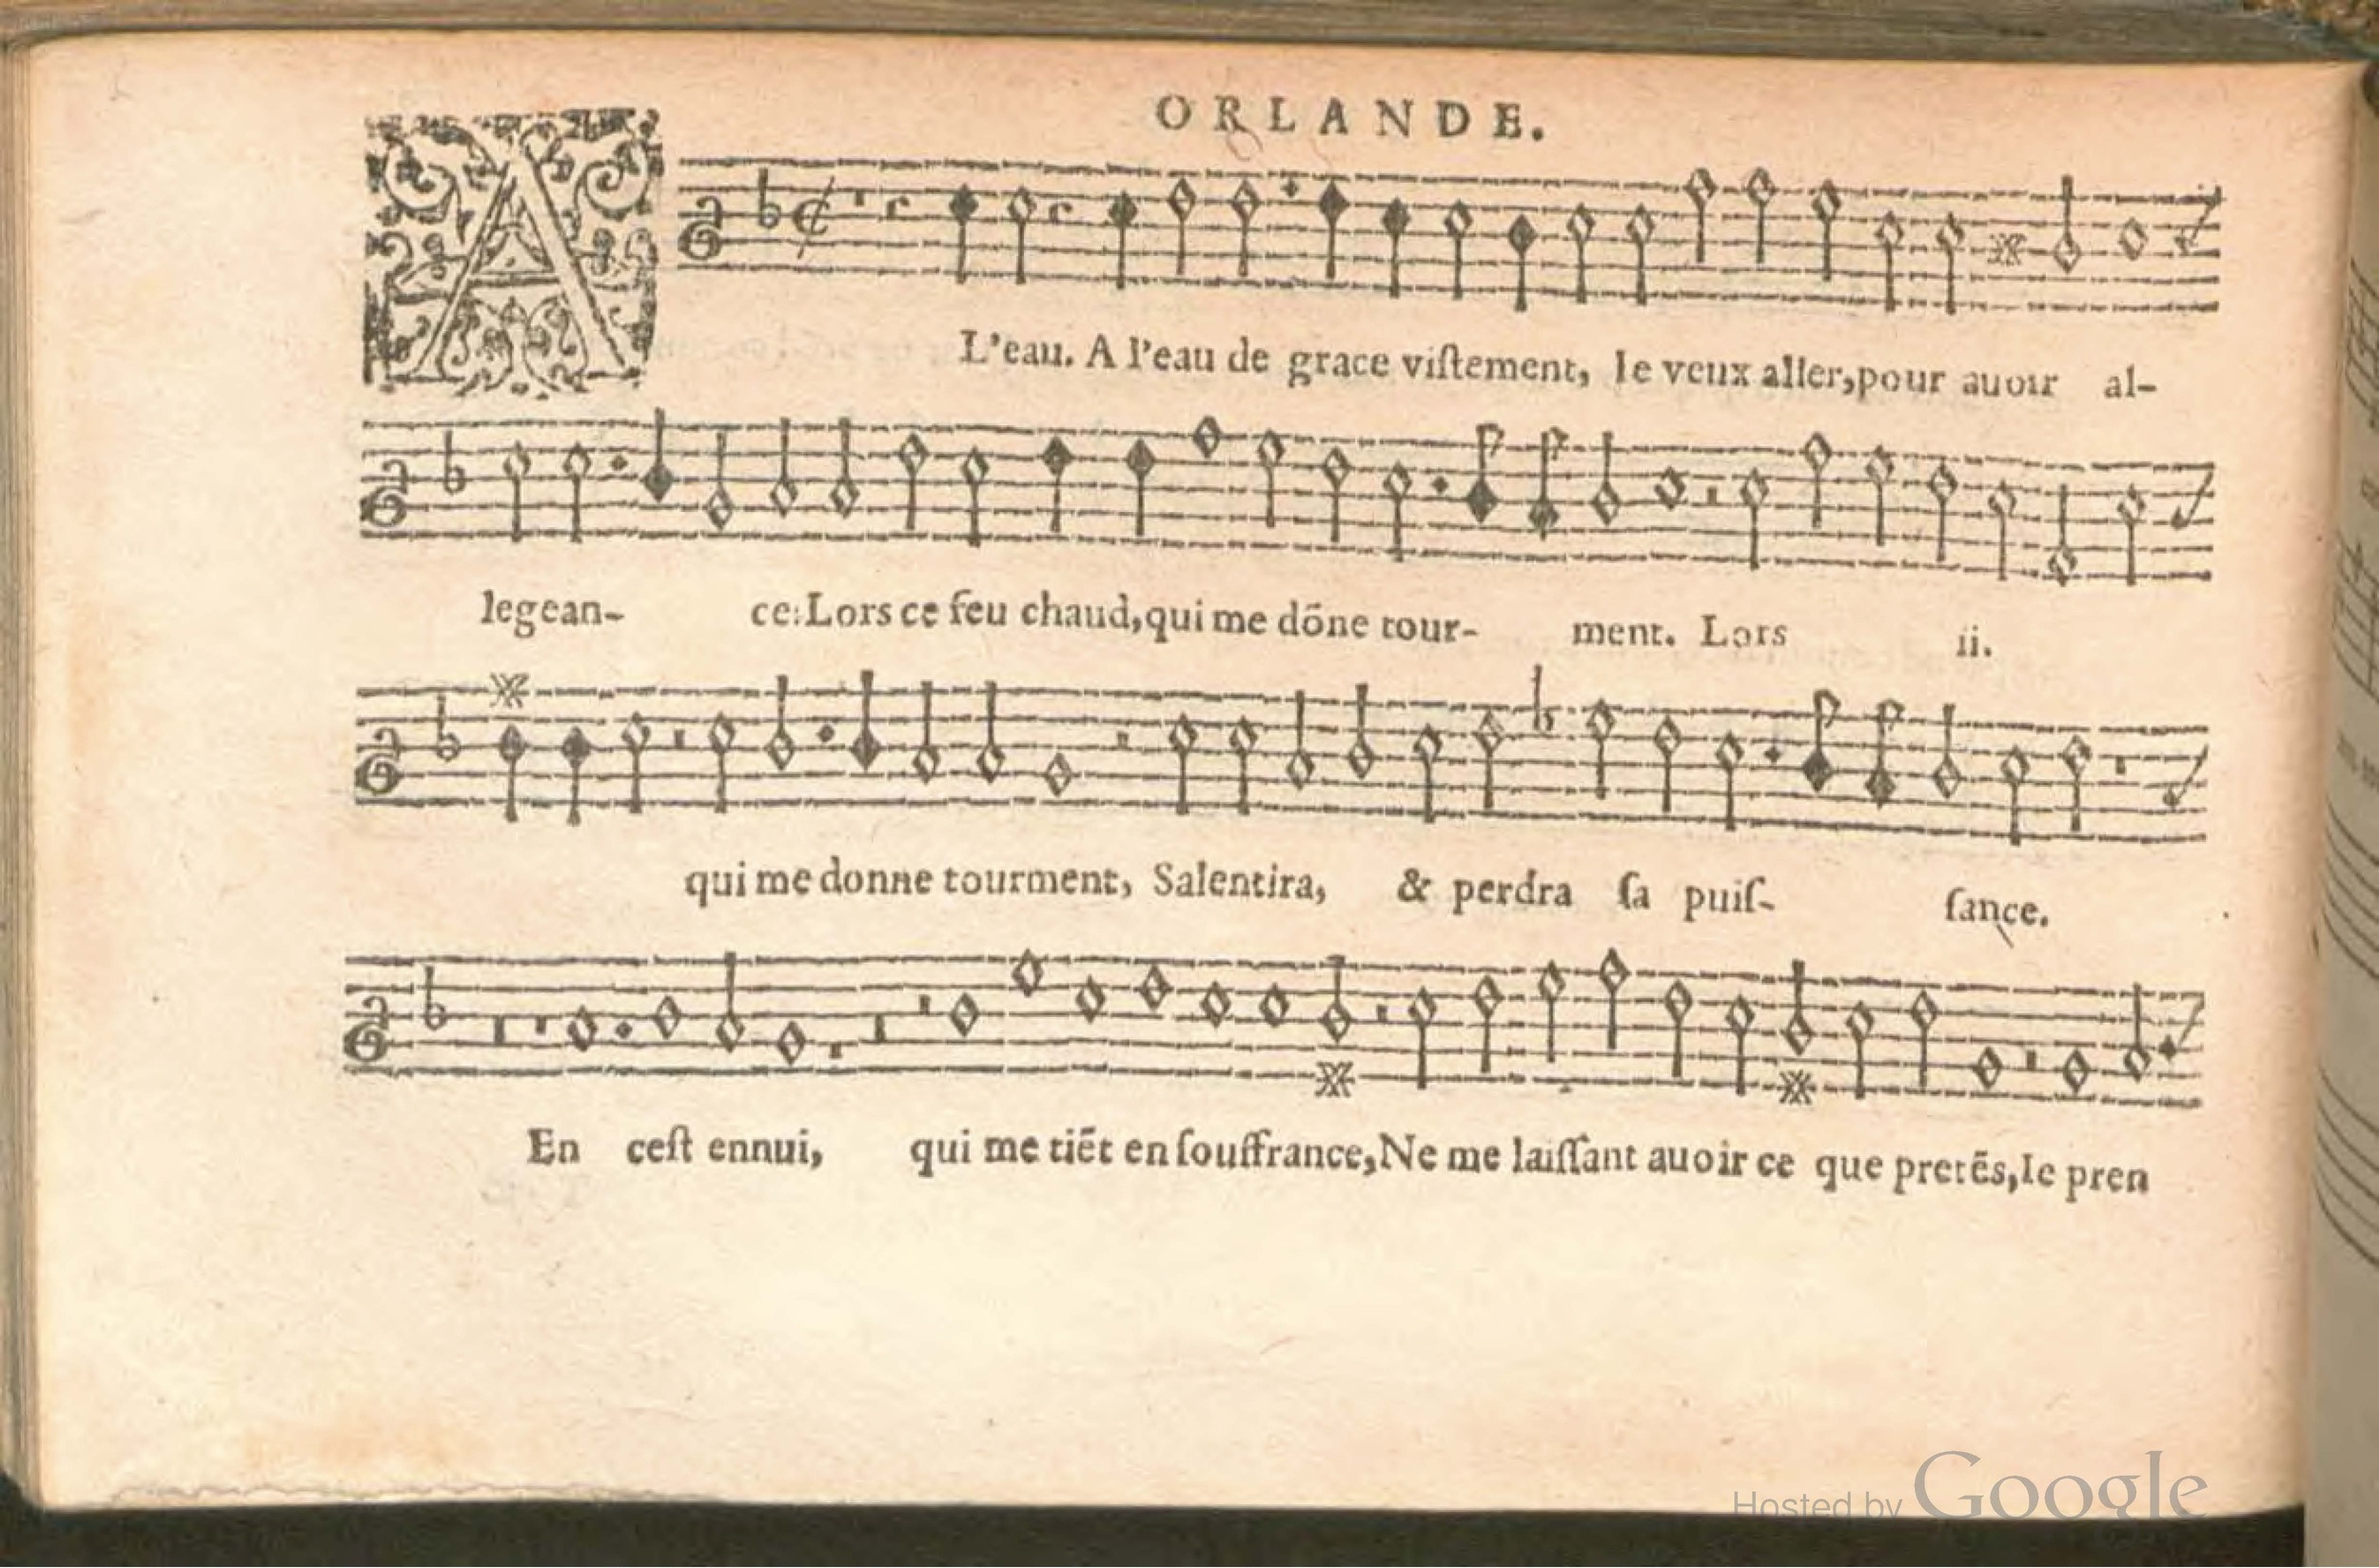 ORLANDE.
A L'eau. A l'eau de grace viſtement, Ie veux aller,pour auoir al-
legean- ce:Lors ce feu chaud,qui me dōne tour- ment. Lors ii.
qui me donne tourment, Salentira, & perdra ſa puiſ- ſance.
En ceſt ennui, qui me tiēt en ſouffrance,Ne me laiſſant auoir ce que pretēs,Ie pren
Hosted by Google